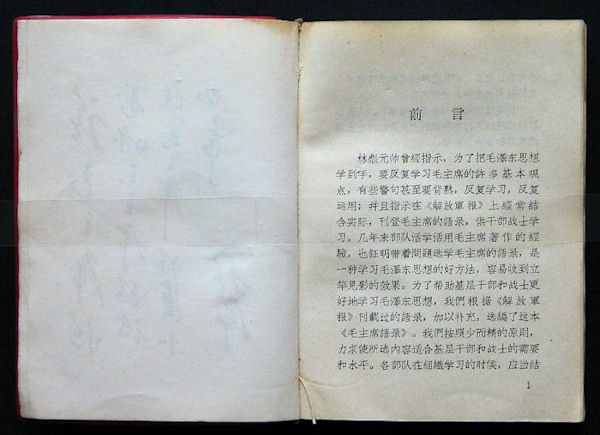 前言
林彪元帅曾經指示，为了把毛澤东思想
学到手，要反复学习毛主席的許多基本观
点，有些警句甚至要背熟，反复学习，反复
运用；并且指示在《解放軍报》上經常結
合实际，刊登毛主席的語录，供干部战士学
习。几年来部队活学活用毛主席著作的經
驗，也証明带着問題选学毛主席的語录，是
一种学习毛澤东思想的好方法，容易收到立
竿见影的效果。为了帮助基层干部和战士更
好地学习毛澤东思想，我們根据《解放軍
报》刊載过的語录，加以补充，选編了这本
《毛主席語录》。我們按照少而精的原則，
力求使所选內容适合基层干部和战士的需要
和水平。各部队在組織学习的时候，应当結
1